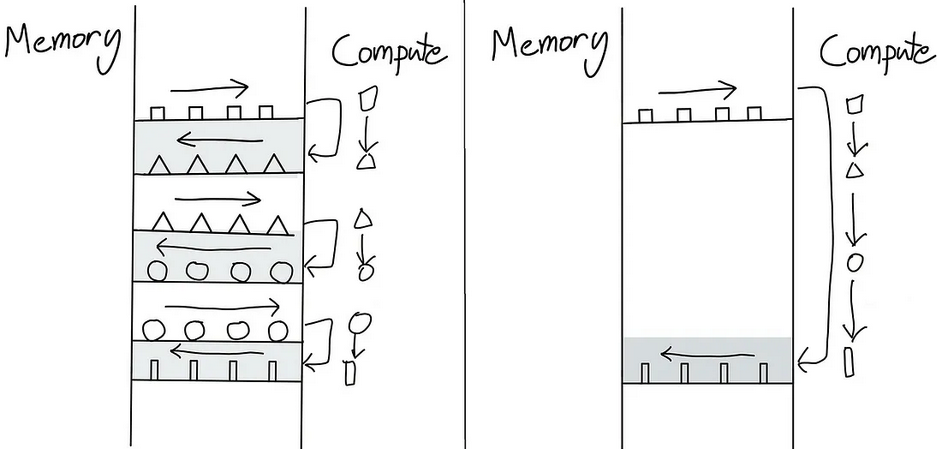 Memory
Compute
Memory
Compute